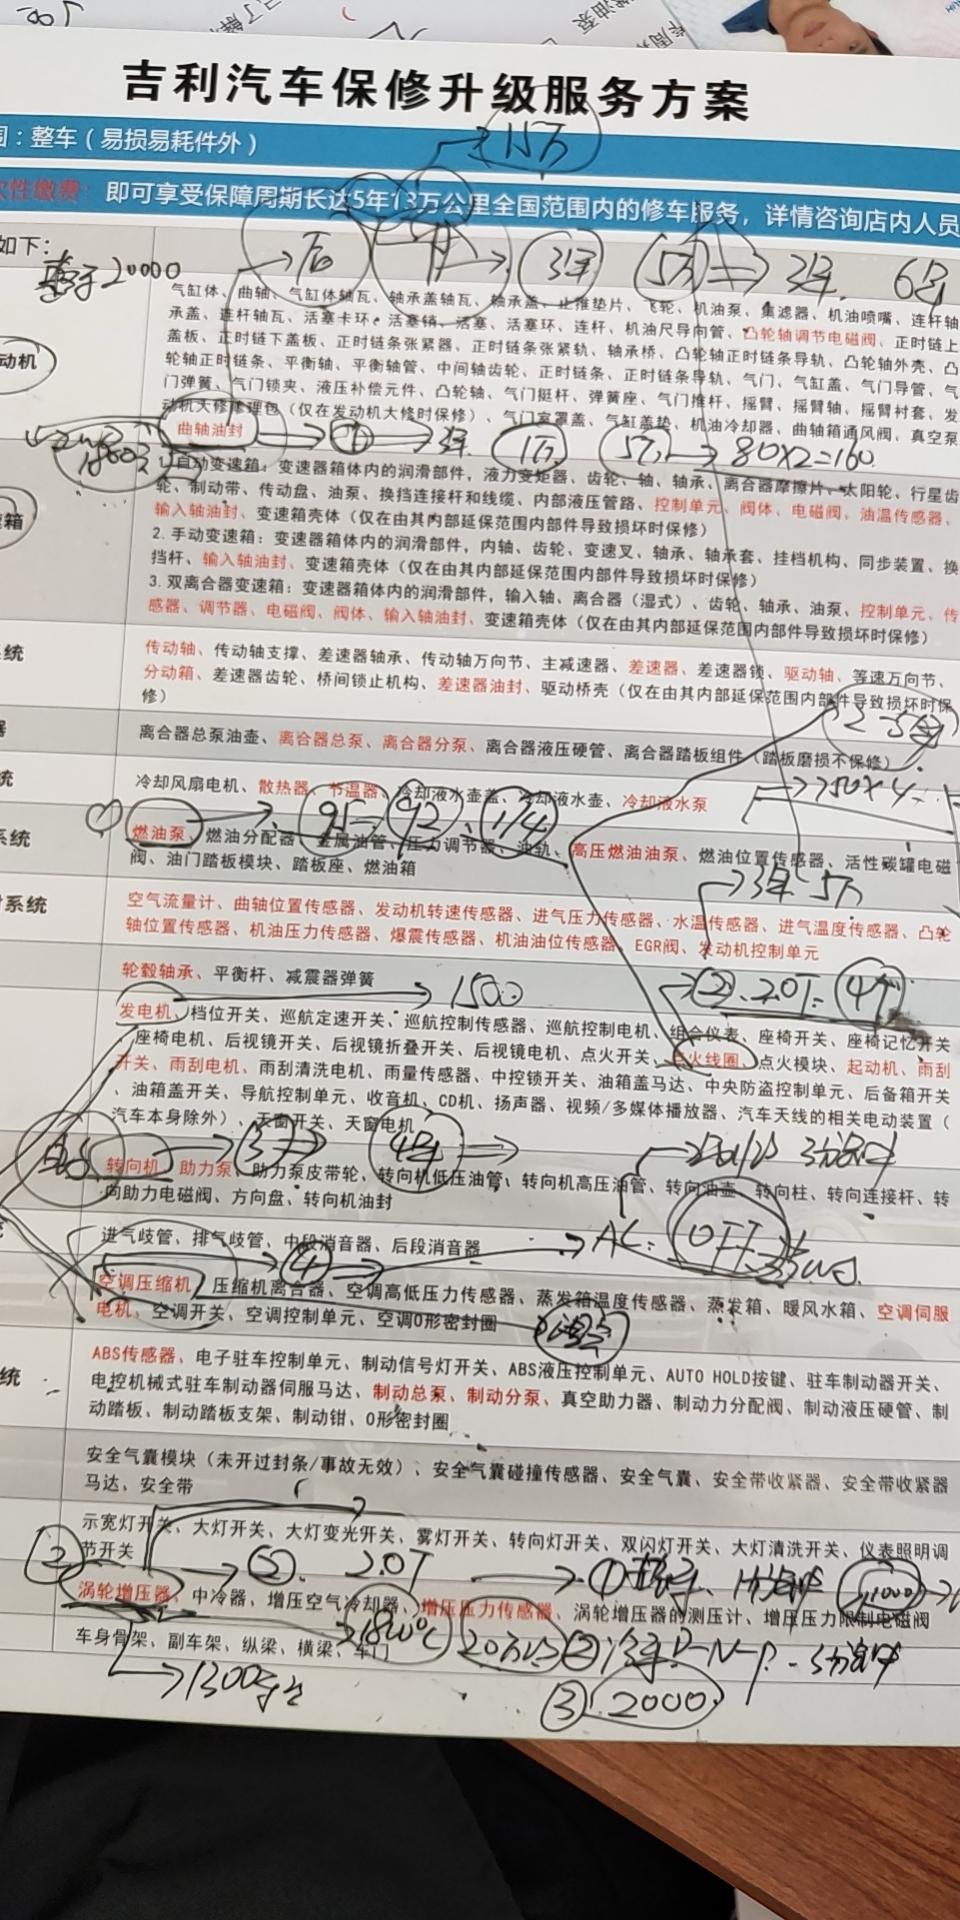 吉利汽车保修升级服务方案
：整车（易损易耗件外）
1万
次性缴费：即可享受保障周期长达5年13万公里全国范围内的修车服务，详情咨询店内人员
如下：
20000
气缸体、曲轴、气缸体轴瓦、轴承盖轴瓦、轴承盖、止推垫片、飞轮、机油泵、集滤器、机油喷嘴、连杆轴
承盖、连杆轴瓦、活塞卡环、活塞销、活塞、活塞环、连杆、机油尺导向管、凸轮轴调节电磁阀、正时链上
盖板、正时链下盖板、正时链条张紧器、正时链条张紧轨、轴承桥、凸轮轴正时链条导轨、凸轮轴外壳、凸
动机
轮轴正时链条、平衡轴、平衡轴管、中间轴齿轮、正时链条、正时链条导轨、气门、气缸盖、气门导管、气
门弹簧、气门锁夹、液压补偿元件、凸轮轴、气门挺杆、弹簧座、气门推杆、摇臂、摇臂轴、摇臂衬套、发
动机大修修理包（仅在发动机大修时保修）、气门室罩盖、气缸盖垫、机油冷却器、曲轴箱通风阀、真空泵
曲轴油封
80×2=160
1.自动变速箱：变速器箱体内的润滑部件，液力变矩器、齿轮、轴、轴承、离合器摩擦片、太阳轮、行星齿
轮、制动带、传动盘、油泵、换挡连接杆和线缆、内部液压管路、控制单元、阀体、电磁阀、油温传感器、
箱
输入轴油封、变速箱壳体（仅在由其内部延保范围内部件导致损坏时保修）
2.手动变速箱：变速器箱体内的润滑部件，内轴、齿轮、变速叉、轴承、轴承套、挂档机构、同步装置、换
挡杆、输入轴油封、变速箱壳体（仅在由其内部延保范围内部件导致损坏时保修）
3.双离合器变速箱：变速器箱体内的润滑部件，输入轴、离合器（湿式）、齿轮、轴承、油泵、控制单元、传
感器、调节器、电磁阀、阀体、输入轴油封、变速箱壳体（仅在由其内部延保范围内部件导致损坏时保修）
系统
传动轴、传动轴支撑、差速器轴承、传动轴万向节、主减速器、差速器、差速器锁、驱动轴、等速万向节、
分动箱、差速器齿轮、桥间锁止机构、差速器油封、驱动桥壳（仅在由其内部延保范围内部件导致损坏时保
修）
器
离合器总泵油壶、离合器总泵、离合器分泵、离合器液压硬管、离合器踏板组件（踏板磨损不保修）
统
冷却风扇电机、散热器、节温器、冷却液水壶盖、冷却液水壶、冷却液水泵
750×4
95 92
系统
燃油泵、燃油分配器、金属油管、压力调节器、油轨、高压燃油油泵、燃油位置传感器、活性碳罐电磁
阀、油门踏板模块、踏板座、燃油箱
3年 5万
系统
空气流量计、曲轴位置传感器、发动机转速传感器、进气压力传感器、水温传感器、进气温度传感器、凸轮
轴位置传感器、机油压力传感器、爆震传感器、机油油位传感器、EGR阀、发动机控制单元
轮毂轴承、平衡杆、减震器弹簧
1500
② 2.0T 4个
发电机、档位开关、巡航定速开关、巡航控制传感器、巡航控制电机、组合仪表、座椅开关、座椅记忆开关
、座椅电机、后视镜开关、后视镜折叠开关、后视镜电机、点火开关、点火线圈、点火模块、起动机、雨刮
开关、雨刮电机、雨刮清洗电机、雨量传感器、中控锁开关、油箱盖马达、中央防盗控制单元、后备箱开关
、油箱盖开关、导航控制单元、收音机、CD机、扬声器、视频/多媒体播放器、汽车天线的相关电动装置（
汽车本身除外）、天窗开关、天窗电机
转向机、助力泵、助力泵皮带轮、转向机低压油管、转向机高压油管、转向油壶、转向柱、转向连接杆、转
向助力电磁阀、方向盘、转向机油封
进气歧管、排气歧管、中段消音器、后段消音器
④ AC: OFF
空调压缩机、压缩机离合器、空调高低压力传感器、蒸发箱温度传感器、蒸发箱、暖风水箱、空调伺服
电机、空调开关、空调控制单元、空调O形密封圈
统
ABS传感器、电子驻车控制单元、制动信号灯开关、ABS液压控制单元、AUTO HOLD按键、驻车制动器开关、
电控机械式驻车制动器伺服马达、制动总泵、制动分泵、真空助力器、制动力分配阀、制动液压硬管、制
动踏板、制动踏板支架、制动钳、O形密封圈
安全气囊模块（未开过封条/事故无效）、安全气囊碰撞传感器、安全气囊、安全带收紧器、安全带收紧器
马达、安全带
示宽灯开关、大灯开关、大灯变光开关、雾灯开关、转向灯开关、双闪灯开关、大灯清洗开关、仪表照明调
节开关
② 2.0T ① 1000
涡轮增压器、中冷器、增压空气冷却器、增压压力传感器、涡轮增压器的测压计、增压压力限制电磁阀
车身骨架、副车架、纵梁、横梁、车门
20万 ② P-N-P
1300
③ 2000